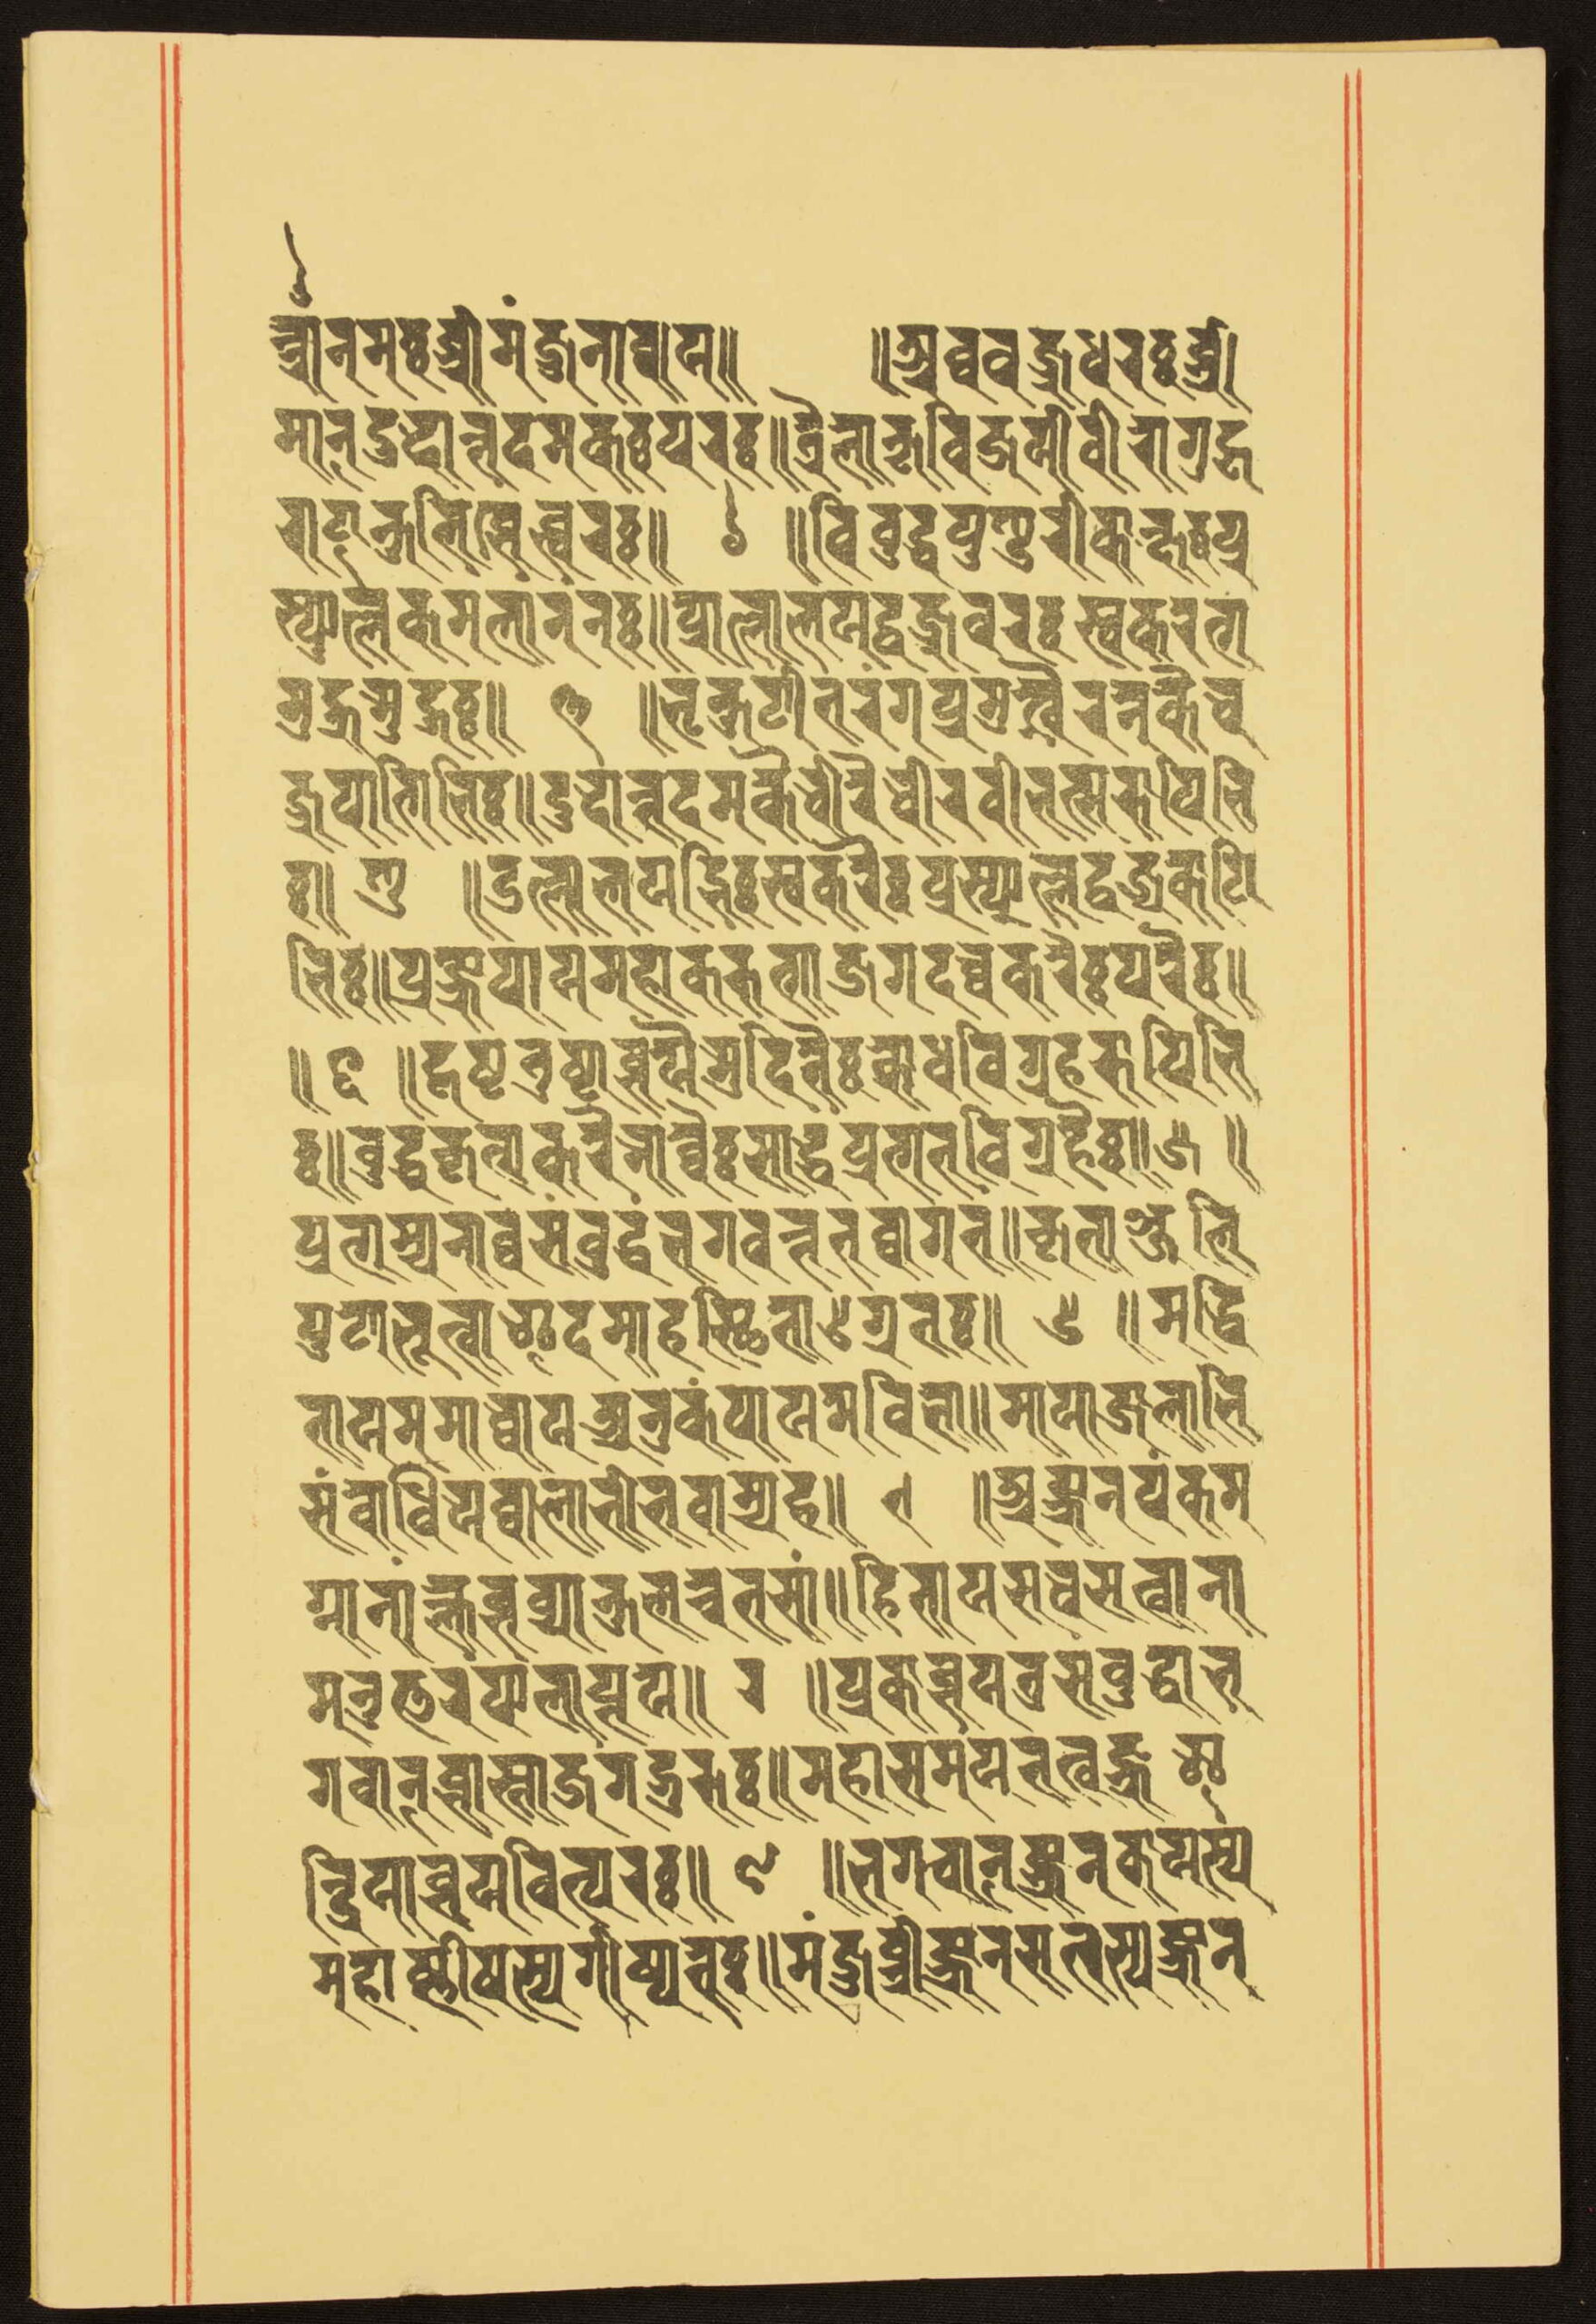 ॐनमःश्रीमंजुनाथाय॥ ॥अथवज्रधरःश्री
मान्दुर्दान्तदमकःपरः॥त्रैलोक्यविजयीवीरोगुह्य
राट्कुलिशेश्वरः॥ १ ॥विबुद्धपुण्डरीकाक्षःप्रो
त्फुल्लकमलाननः॥प्रोल्लालयद्वज्रवरंस्वकरेण
मुहुर्मुहुः॥ २ ॥भृकुटीतरंगप्रमुखैरनन्तैर्व
ज्रपाणिभिः॥दुर्दान्तदमकैर्वीरैर्वीरबीभत्सरूपिभि
ः॥ ३ ॥उल्लालयद्भिःस्वकरैःप्रस्फुरद्वज्रकोटि
भिः॥प्रज्ञोपायमहाकरुणाजगदर्थकरैःपरैः॥
॥ ४ ॥हृष्टतुष्टाशयैर्मुदितैःक्रोधविग्रहरूपिभि
ः॥बुद्धकृत्यकरैर्नाथैःसार्द्धंप्रणतविग्रहैः॥ ५ ॥
प्रणम्यनाथंसंबुद्धंभगवन्तंतथागतं॥कृताञ्जलि
पुटोभूत्वाइदमाहस्थितोऽग्रतः॥ ६ ॥मद्धि
तायममार्थायअनुकंपायमेविभो॥मायाजालाभि
संबोधिंयथालाभीभवाम्यहं॥ ७ ॥अज्ञानपंकम
ग्नानांक्लेशव्याकुलचेतसां॥हितायसर्वसत्वाना
मनुत्तरंफलाप्तये॥ ८ ॥प्रकाशयतुसंबुद्धोभ
गवान्शास्ताजगद्गुरुः॥महासमयतत्वज्ञइ
न्द्रियाशयवित्परः॥ ९ ॥भगवान्ज्ञानकायस्य
महोष्णीषस्यगीष्पतेः॥मंजुश्रीज्ञानसत्वस्यज्ञान